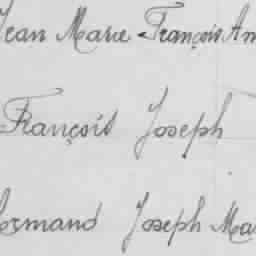 Jean Marie François Am
François Joseph
Armand Joseph Ma